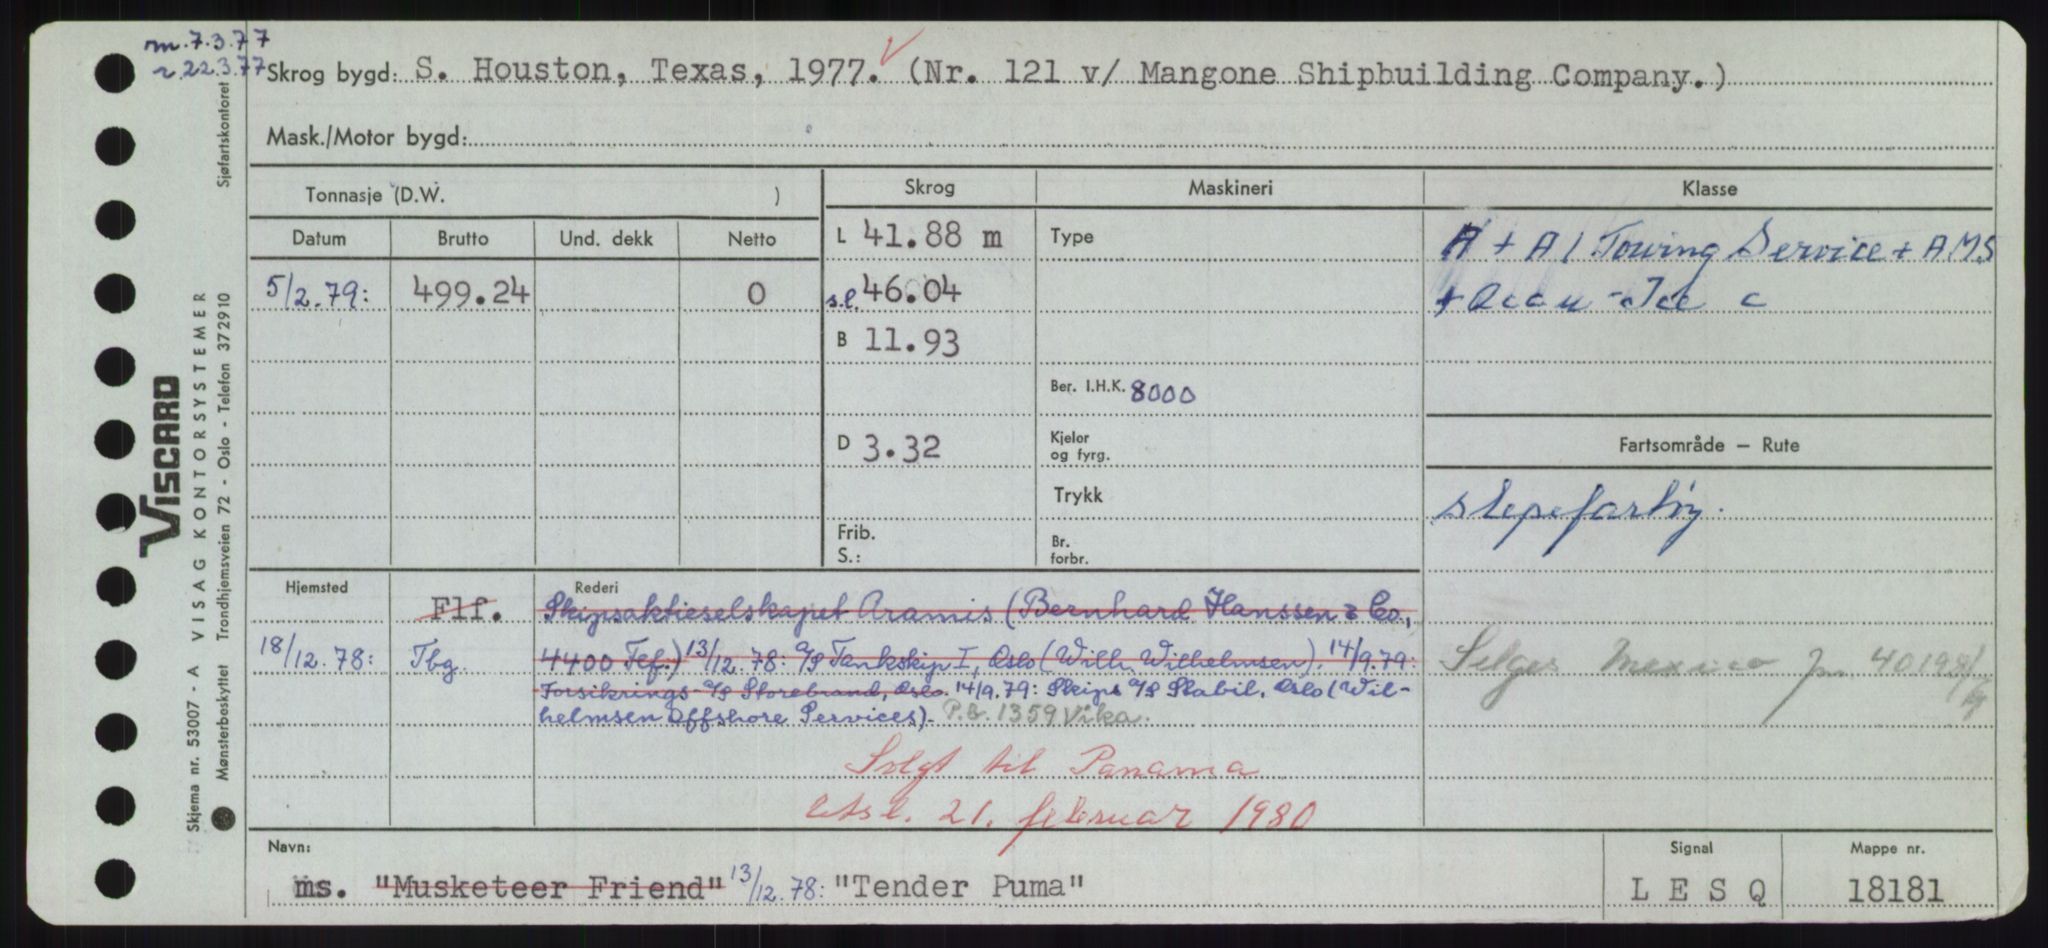 m.7.3.77
r.22.3.77
Skrog bygd: S. Houston, Texas, 1977. (Nr. 121 v/ Mangone Shipbuilding Company.)
Mask./Motor bygd:
Tonnasje (D.W. )
Skrog
Maskineri
Klasse
Datum
Brutto
Und. dekk
Netto
L 41.88 m
Type
A + A1 Towing Service + AMS
5/2.79:
499.24
0
s.l. 46.04
+ Ice c
B 11.93
Ber. I.H.K. 8000
D 3.32
Kjeler og fyrg.
Fartsområde — Rute
Trykk
slepefartøy.
Frib.
S.:
Br. forbr.
Hjemsted
Rederi
Flf.
Skipsaktieselskapet Aramis (Bernhard Hanssen & Co.,
18/12.78:
Tbg.
4400 Flf.) 13/12.78: A/S Tankskip I, Oslo (Wilh. Wilhelmsen). 14/9.79:
Forsikrings-A/S Storebrand, Oslo. 14/9.79: Skips A/S Stabil, Oslo (Wil-
helmsen Offshore Services). P.B. 1359 Vika.
Selges Mexico
Solgt til Panama
21. februar 1980
Navn:
ms. "Musketeer Friend" 13/12.78: "Tender Puma"
Signal
L E S Q
Mappe nr.
18181
Skjema nr. 53007 - A VISAG KONTORSYSTEMER
Mønsterbeskyttet Trondhjemsveien 72 - Oslo - Telefon 372910
Sjøfartskontoret
VISCARD